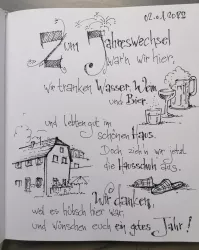 02.01.2022
Zum Jahreswechsel
war'n wir hier,
wir tranken Wasser, Wein
und Bier.
und lebten gut im
schönen Haus.
Doch zieh'n wir jetzt
die Hausschuh aus.
Wir danken,
weil es hübsch hier war
und wünschen euch ein gutes Jahr!